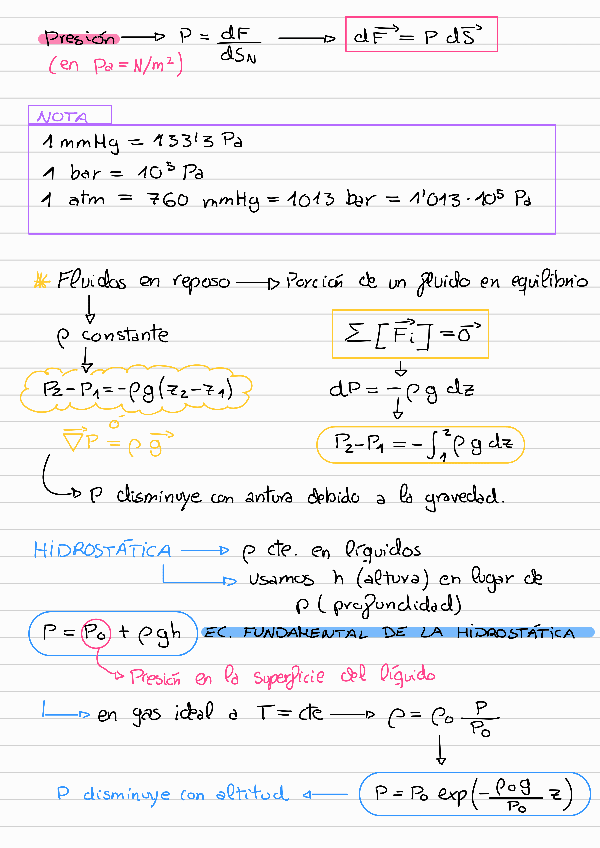 Presión → P = dF/dS_N → dF⃗ = P dS⃗
(en Pa = N/m²)
NOTA
1 mmHg = 133'3 Pa
1 bar = 10⁵ Pa
1 atm = 760 mmHg = 1013 bar = 1'013·10⁵ Pa
* Fluidos en reposo → Porción de un fluido en equilibrio
ρ constante
Σ[F⃗i] = 0⃗
P₂-P₁ = -ρg(z₂-z₁)
dP = -ρ g dz
∇⃗P = ρ g⃗
P₂-P₁ = -∫₁² ρ g dz
→ P disminuye con antura debido a la gravedad.
HIDROSTÁTICA → ρ cte. en líquidos
→ usamos h (altura) en lugar de
p (profundidad)
P = P₀ + ρgh EC. FUNDAMENTAL DE LA HIDROSTÁTICA
→ Presión en la superficie del líquido
→ en gas ideal a T = cte → ρ = ρ₀ P/P₀
P disminuye con altitud ← P = P₀ exp(-ρ₀g/P₀ z)